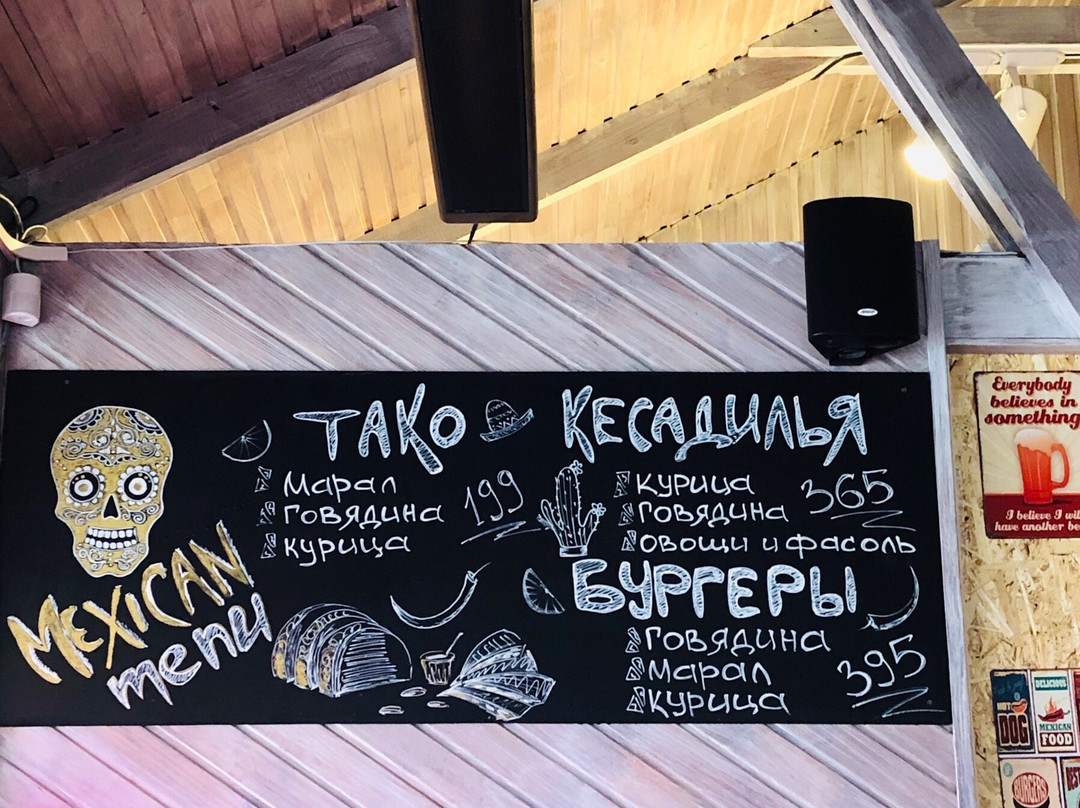 MEXICAN
menu
ТАКО
Марал
Говядина
Курица
199
КЕСАДИЛЬЯ
Курица
Говядина
Овощи и фасоль
365
БУРГЕРЫ
Говядина
Марал
Курица
395
Everybody
believes in
something
I believe I
have another
HOT
DOG
DELICIOUS
MEXICAN
FOOD
BURGERS